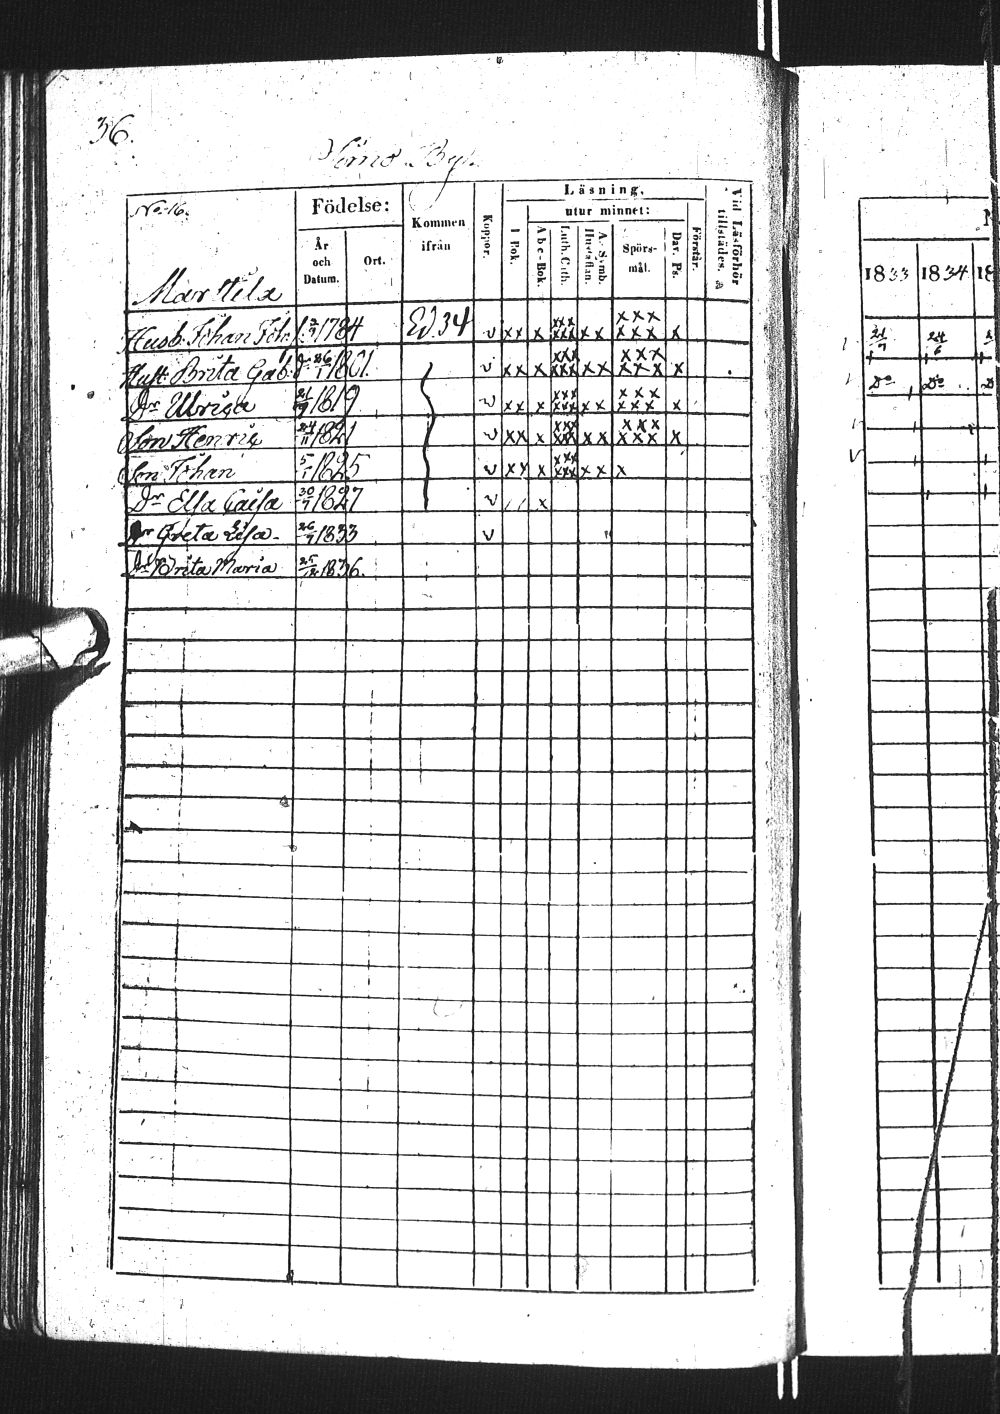 36.
By.
No. 16. Födelse: Kommen ifrån Koppor. Läsning, Vid Läsförhör tillstädes.
utur minnet:
År och Datum. Ort. I Bok. Abc-Bok. Luth. Cath. Hustaflan. A. Symb. Spörsmål. Dav. Ps. Förstår.
Marttila
1833 1834 18
Husb. Johan Joh. 1784 Ed. 34 v xx x xxx xxx xx xxx xxx x 21/7 24/6
Hust. Brita Gab. 26/1 1801. v x x x xxx xxx xx xxx xxx x Do Do
Dr Ulrica 21/9 1819 v xx x xxx xxx xx xxx xxx x
Son Henric 24/11 1821 v xx x xxx xxx xx xxx xxx x
Son Johan 5/1 1825 v xx x xxx xxx xx x
Dr Elsa Caisa 30/7 1827 v / / x
Dr Greta Lisa 26/7 1833 v
Dr Brita Maria 25/12 1836.